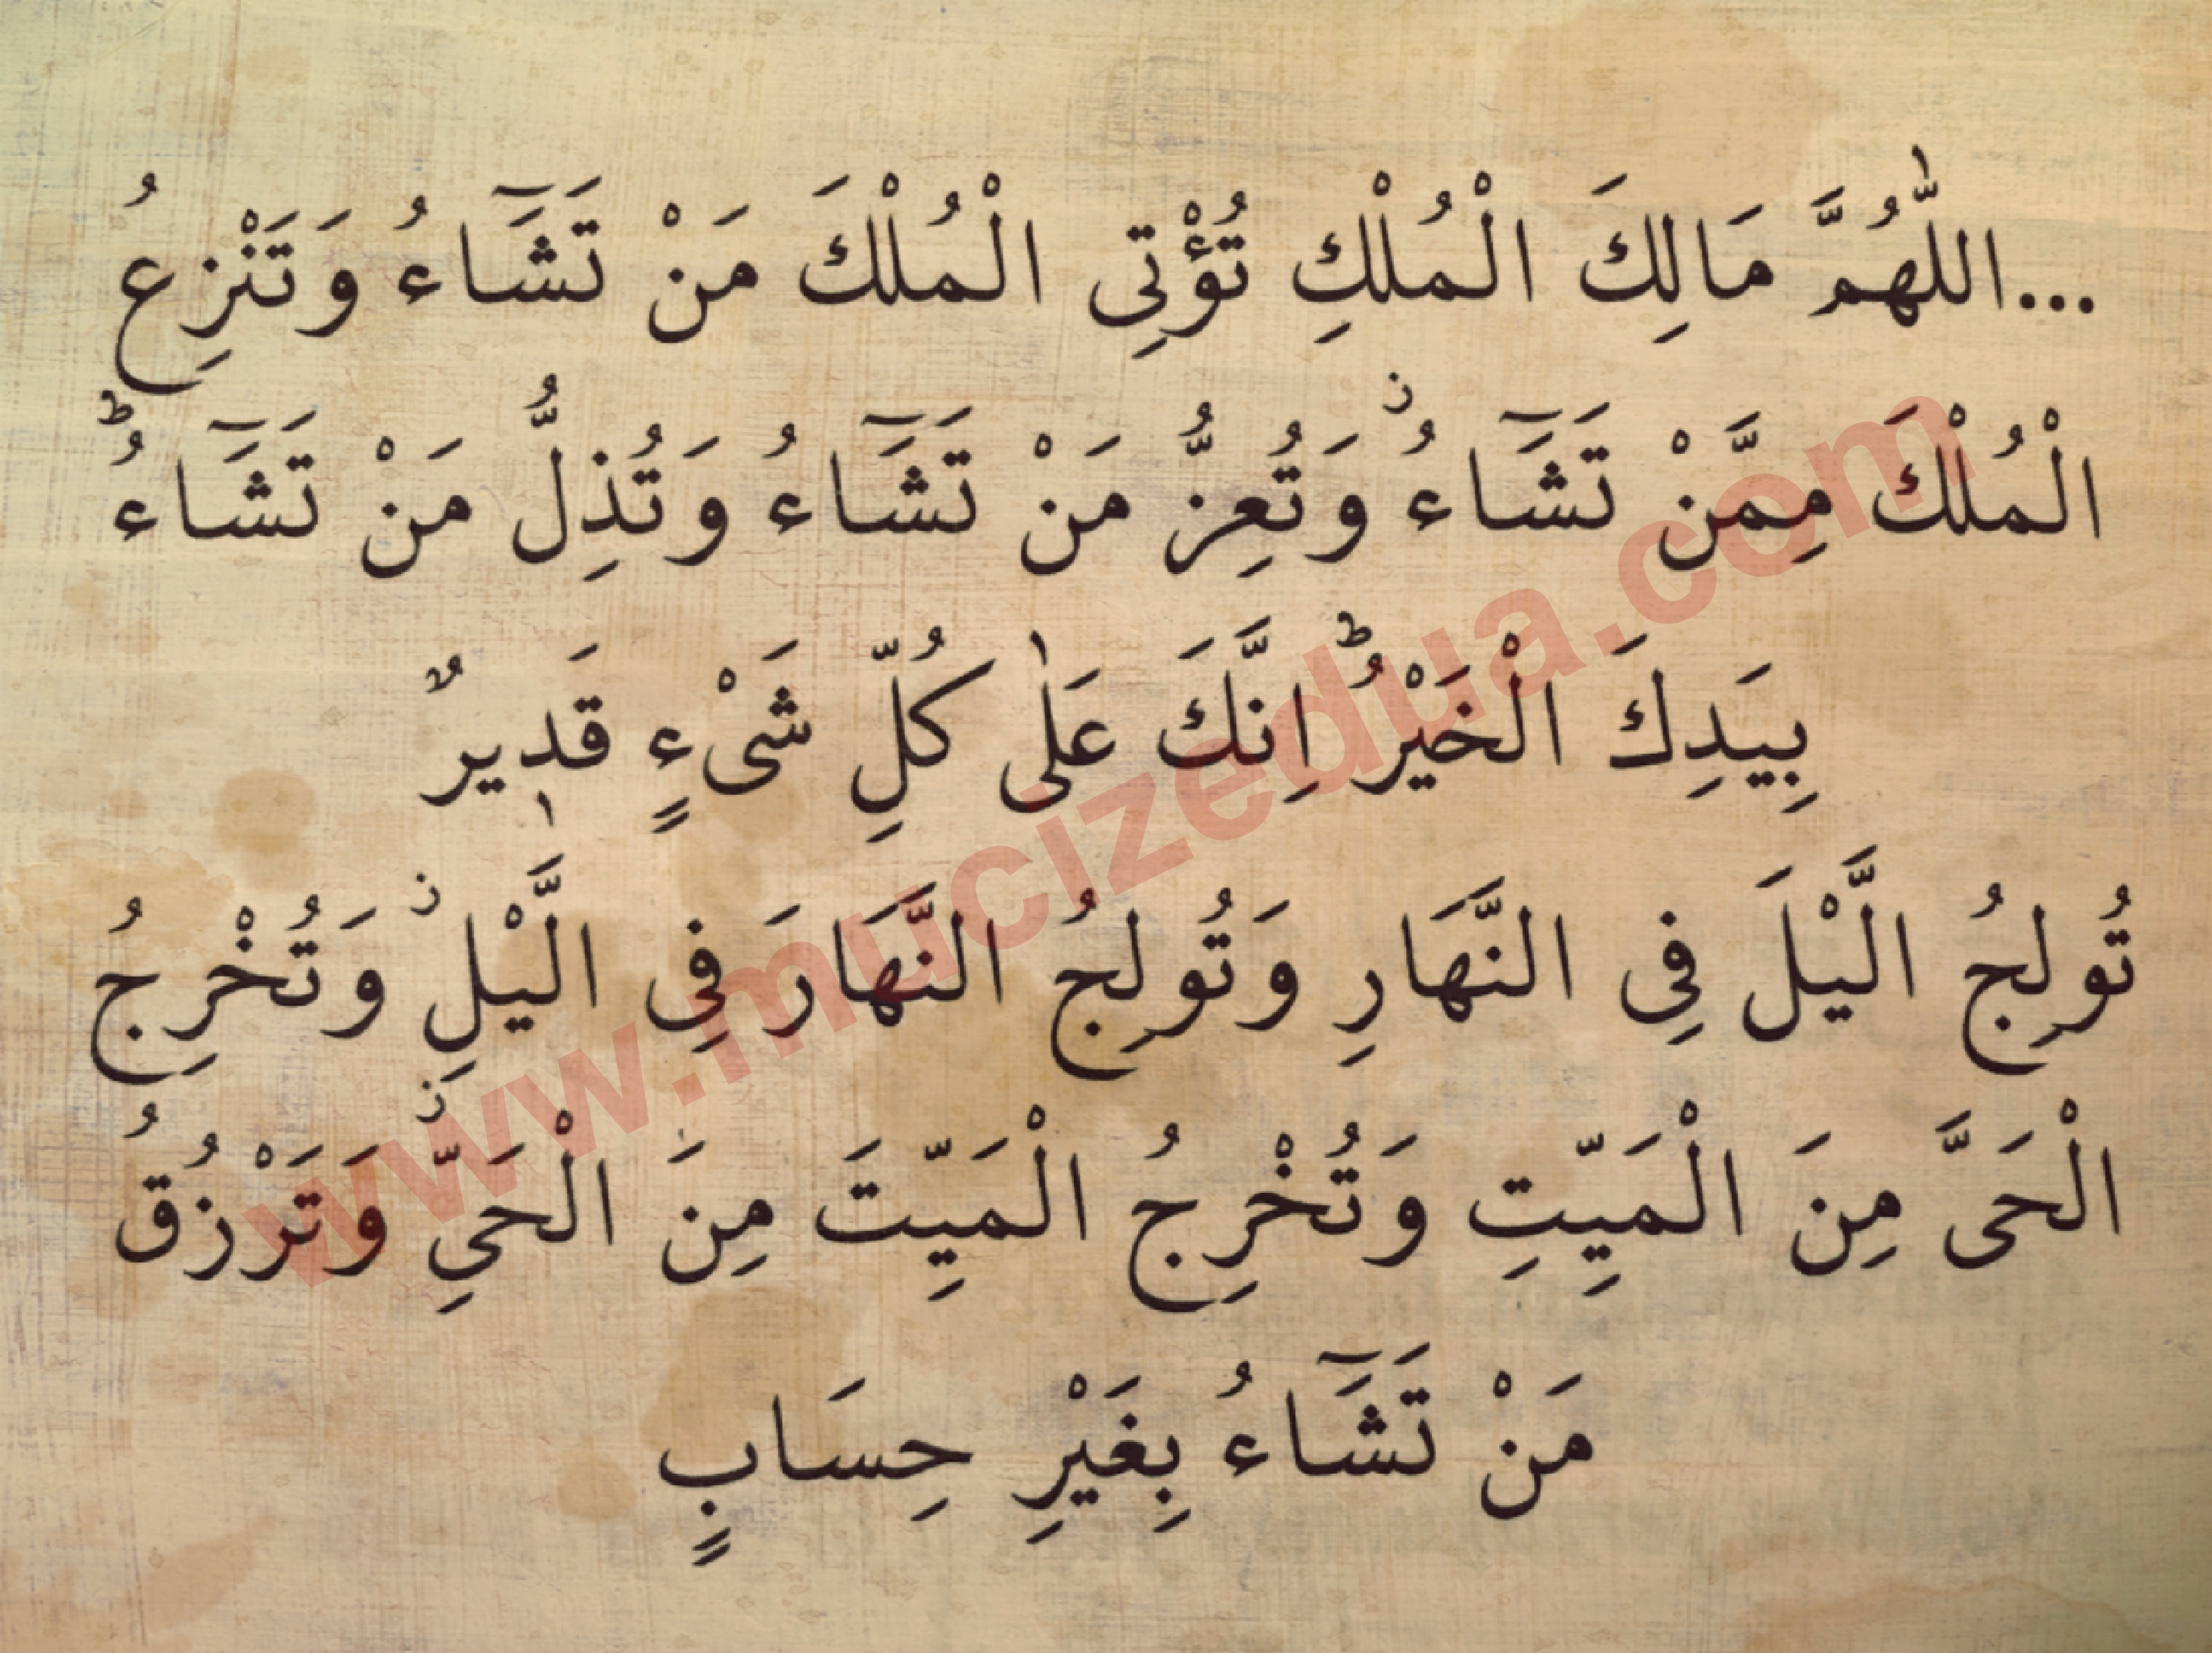 ...اللّٰهُمَّ مَالِكَ الْمُلْكِ تُؤْتِى الْمُلْكَ مَنْ تَشَٓاءُ وَتَنْزِعُ
الْمُلْكَ مِمَّنْ تَشَٓاءُۘ وَتُعِزُّ مَنْ تَشَٓاءُ وَتُذِلُّ مَنْ تَشَٓاءُؕ
بِيَدِكَ الْخَيْرُؕ اِنَّكَ عَلٰى كُلِّ شَىْءٍ قَد۪يرٌ
تُولِجُ الَّيْلَ فِى النَّهَارِ وَتُولِجُ النَّهَارَ فِى الَّيْلِؗ وَتُخْرِجُ
الْحَىَّ مِنَ الْمَيِّتِ وَتُخْرِجُ الْمَيِّتَ مِنَ الْحَىِّؗ وَتَرْزُقُ
مَنْ تَشَٓاءُ بِغَيْرِ حِسَابٍ
www.mucizedua.com